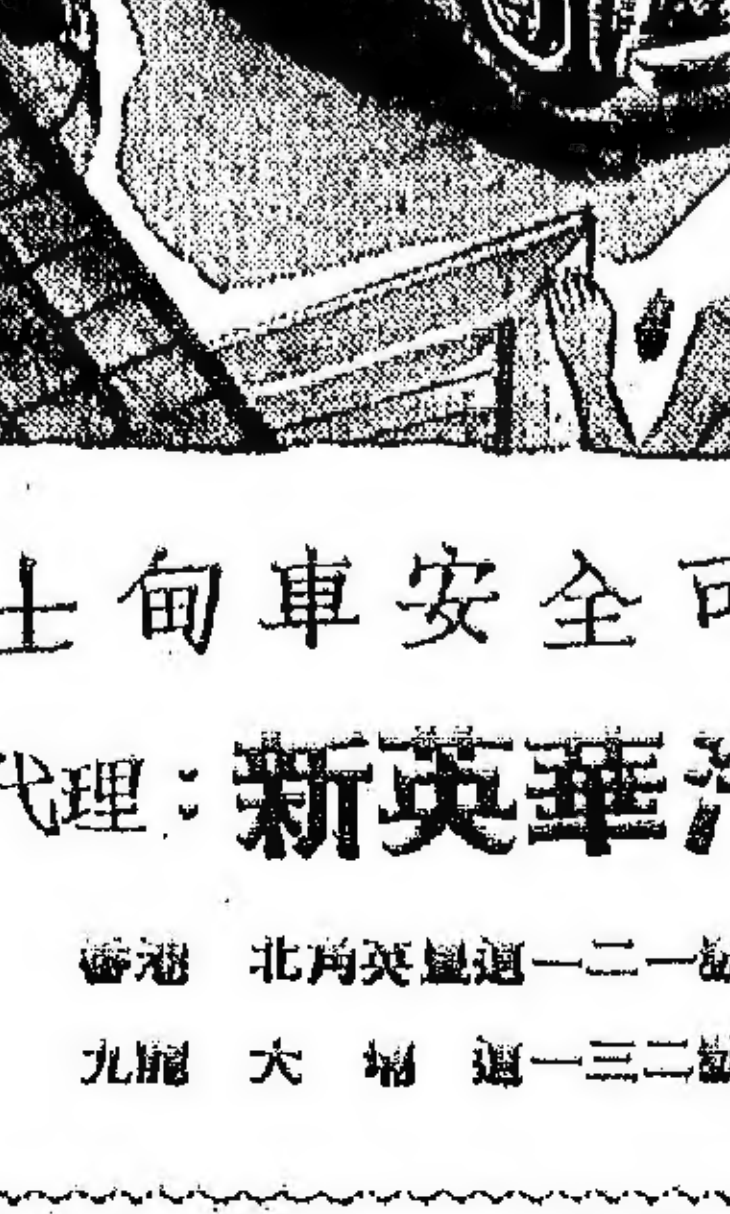 士甸車安全可
代理：新英華汽
香港 北角英皇道一二一號
九龍 大埔道一三二號